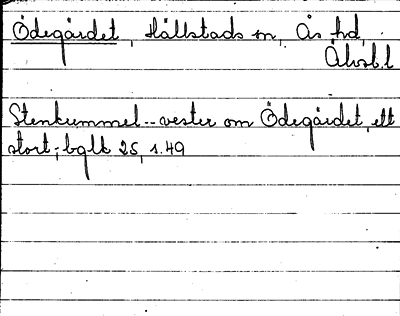 Ödegärdet, Hällstads sn, Ås hd,
Älvsb.l
Stenkummel -- vester om Ödegärdet, ett
stort; bglk 25, s.49